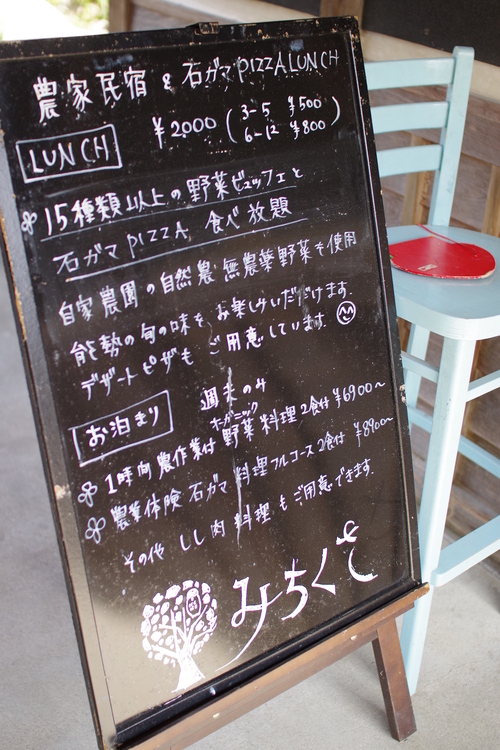 農家民宿 & 石ガマ PIZZA LUNCH
LUNCH
¥2000 (3-5 ¥500
6-12 ¥800)
15種類以上の野菜ビュッフェと
石ガマ PIZZA 食べ放題
自家農園の自然農 無農薬野菜を使用
能勢の旬の味を お楽しみいただけます
デザートピザも ご用意しています
お泊まり
週末のみ
オーガニック
1時間農作業付 野菜料理2食付 ¥6900〜
農業体険 石ガマ料理フルコース2食付 ¥8900〜
その他 しし肉料理もご用意できます
みちくさ